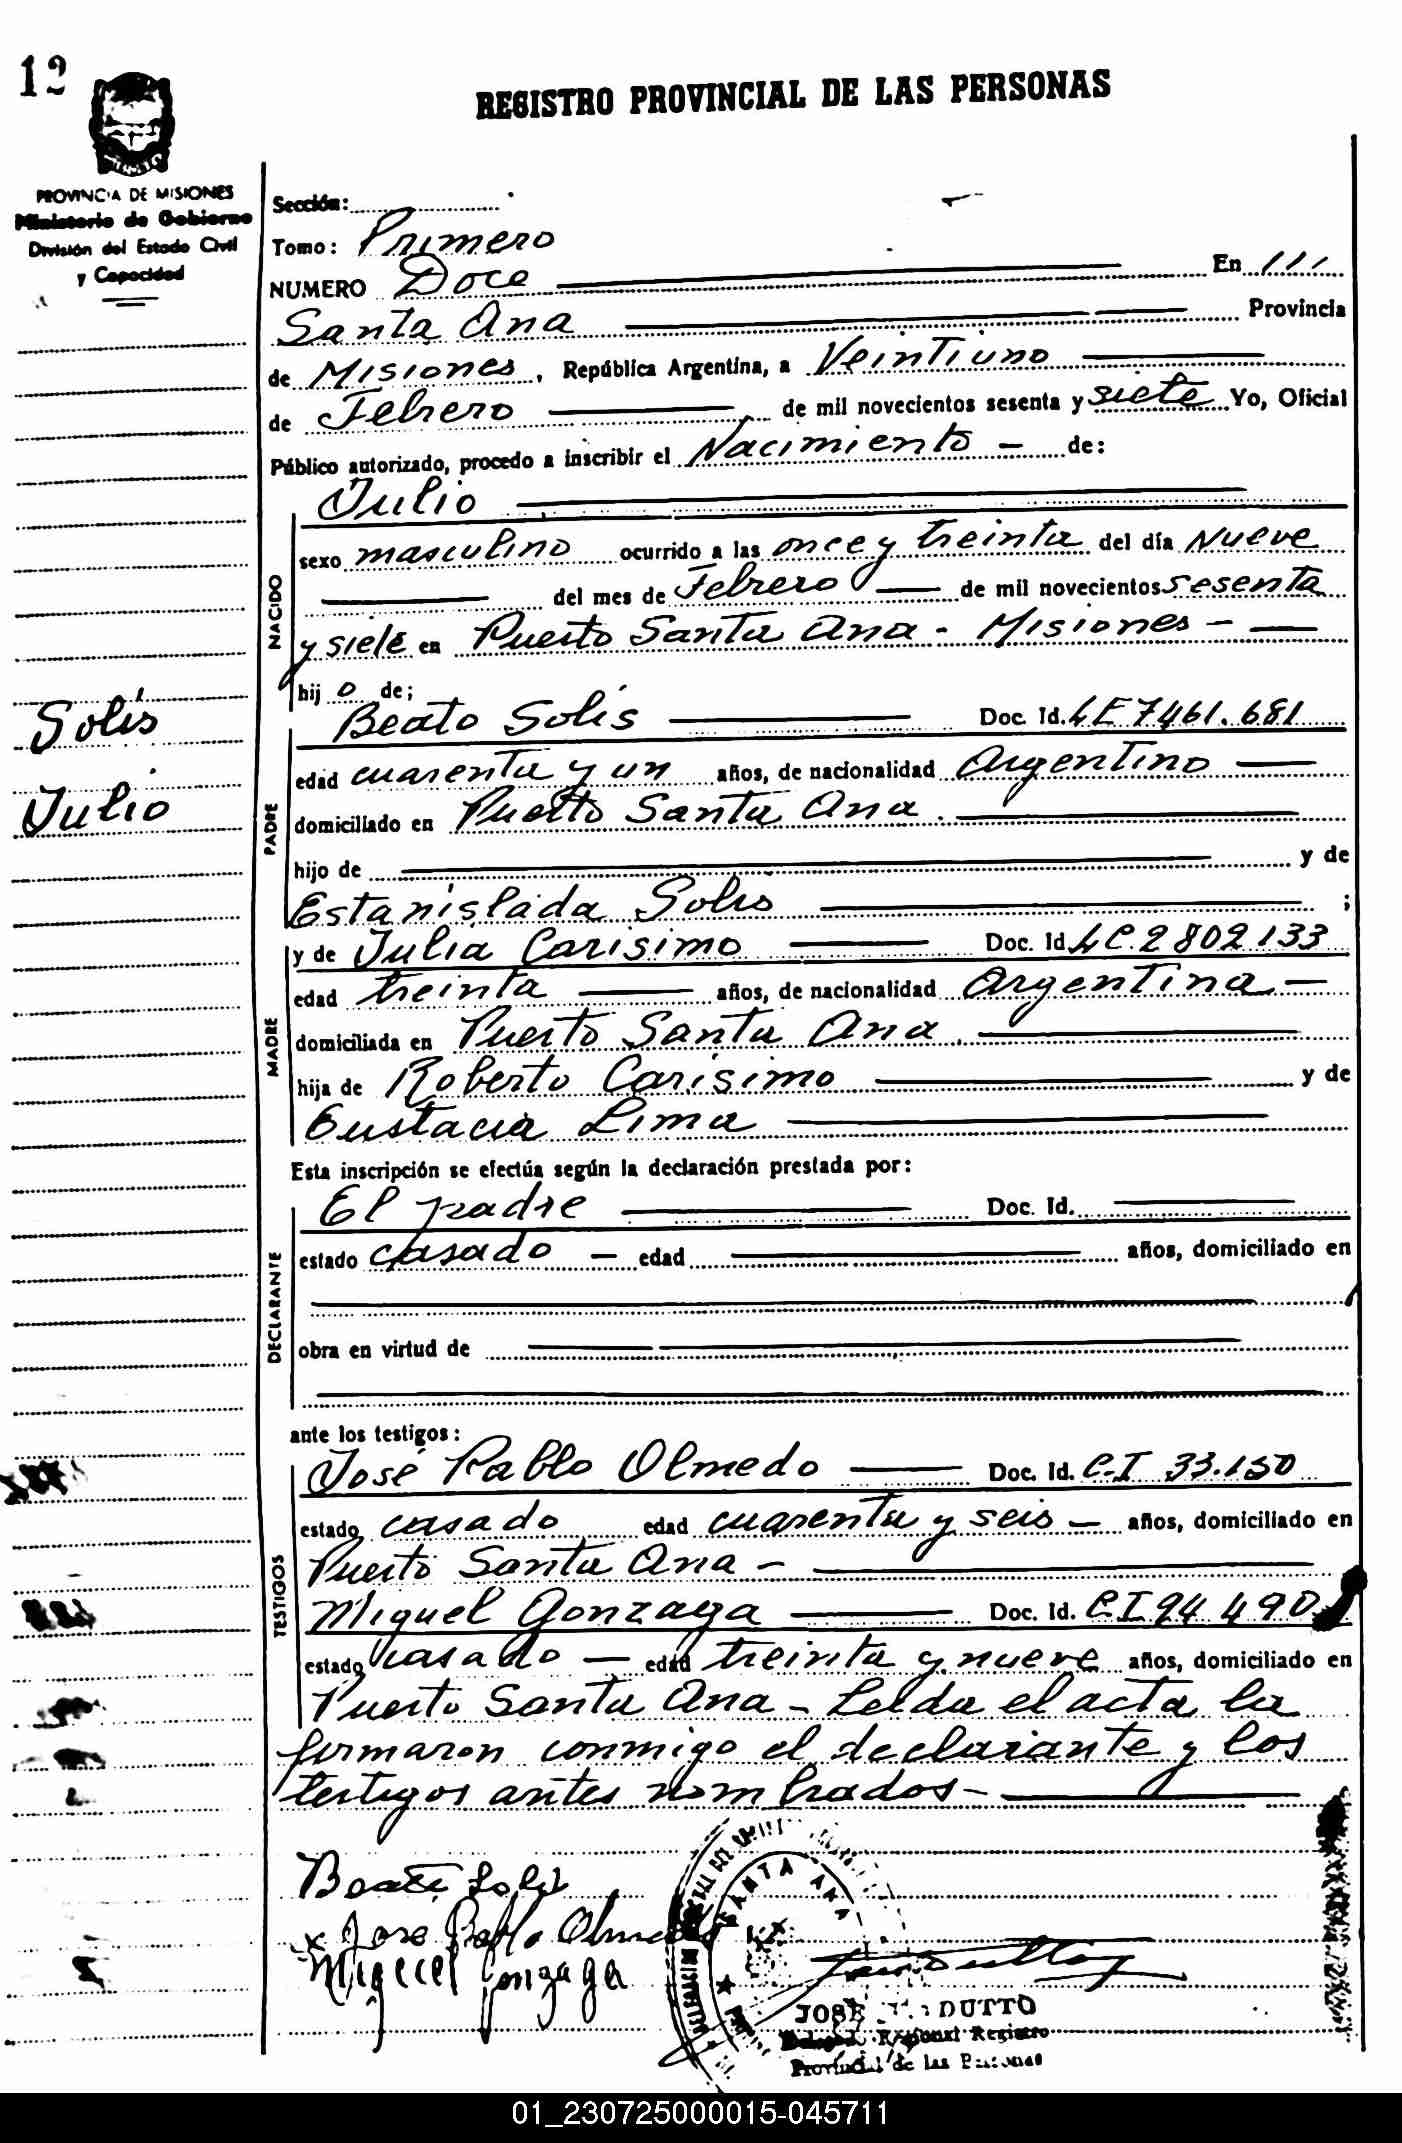 12
REGISTRO PROVINCIAL DE LAS PERSONAS
PROVINCIA DE MISIONES
Ministerio de Gobierno
División del Estado Civil
y Capacidad
Sección:
Tomo: Primero
NUMERO Doce En
Santa Ana Provincia
de Misiones, República Argentina, a Veintiuno
de Febrero de mil novecientos sesenta y siete Yo, Oficial
Público autorizado, procedo a inscribir el Nacimiento - de:
Julio
NACIDO
sexo masculino ocurrido a las once y treinta del día Nueve
del mes de Febrero de mil novecientos sesenta
y siete en Puerto Santa Ana - Misiones -
hijo de;
Solís
Julio
PADRE
Beato Solís Doc. Id. LE 7461.681
edad cuarenta y un años, de nacionalidad Argentino
domiciliado en Puerto Santa Ana.
hijo de y de
Estanislada Solis ;
MADRE
y de Julia Carisimo Doc. Id. LC. 2802133
edad treinta años, de nacionalidad Argentina -
domiciliada en Puerto Santa Ana.
hija de Roberto Carisimo y de
Eustacia Lima
Esta inscripción se efectúa según la declaración prestada por:
DECLARANTE
El padre Doc. Id.
estado casado - edad años, domiciliado en
obra en virtud de
ante los testigos:
TESTIGOS
José Pablo Olmedo Doc. Id. C.I 33.150
estado casado edad cuarenta y seis - años, domiciliado en
Puerto Santa Ana -
Miguel Gonzaga Doc. Id. C I 94 490
estado casado - edad treinta y nueve años, domiciliado en
Puerto Santa Ana - Leída el acta la
firmaron conmigo el declarante y los
testigos antes nombrados -
Beato Solis
x Jose Pablo Olmedo
Miguel Gonzaga
SANTA ANA
JOSE DUTTO
Delegado Regional Registro
Provincial de las Personas
01_230725000015-045711